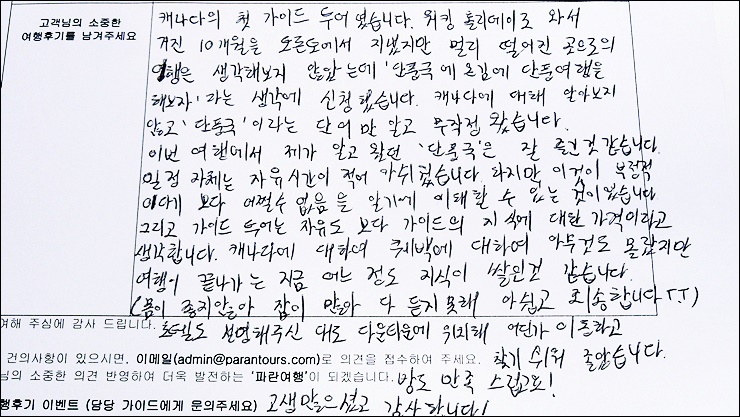 고객님의 소중한
여행후기를 남겨주세요
캐나다의 첫 가이드 투어 였습니다. 워킹 홀리데이로 와서
거진 10개월을 토론토에서 지냈지만 멀리 떨어진 곳으로의
여행은 생각해보지 않았는데 '단풍국에 온김에 단풍여행을
해보자' 라는 생각에 신청했습니다. 캐나다에 대해 알아보지
않고 '단풍국' 이라는 단어만 알고 무작정 왔습니다.
이번 여행에서 제가 알고 왔던 '단풍국'은 잘 즐긴것 같습니다.
일정 자체는 자유시간이 적어 아쉬웠습니다. 하지만 이것이 부정적
이다기 보다 어쩔수 없음을 알기에 이해할 수 있는 것이었습니다
그리고 가이드 투어는 자유도 보다 가이드의 지식에 대한 가격이라고
생각합니다. 캐나다에 대하여 퀘백에 대하여 아무것도 몰랐지만
여행이 끝나가는 지금 어느 정도 지식이 쌓인것 같습니다.
(몸이 좋지않아 잠이 많아 다 듣지못해 아쉽고 죄송합니다TT)
여해 주심에 감사 드립니다. 호텔도 설명해주신 대로 다운타운에 위치해 어딘가 이동하고
건의사항이 있으시면, 이메일(admin@parantours.com)로 의견을 접수하여 주세요. 찾기 쉬워 좋았습니다.
님의 소중한 의견 반영하여 더욱 발전하는 '파란여행'이 되겠습니다. 방도 만족 스럽고요!
행후기 이벤트 (담당 가이드에게 문의주세요) 고생많으셨고 감사합니다!